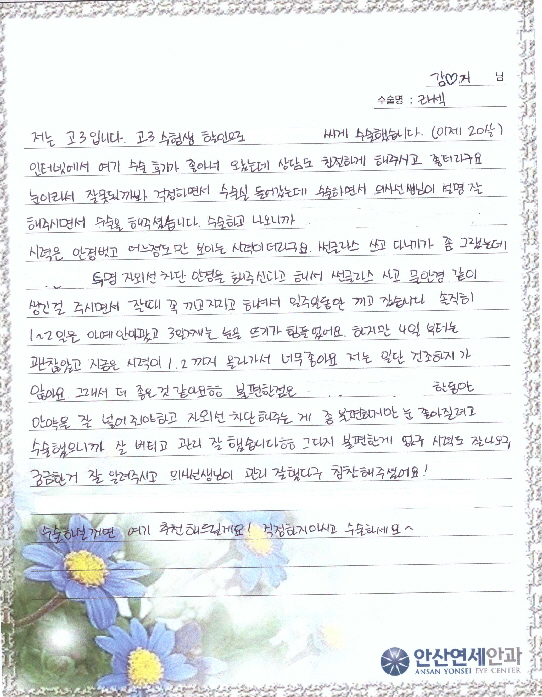 김♡지 님
수술명 : 라섹
저는 고3입니다. 고3 수험생 할인으로 싸게 수술했습니다. (이제 20살)
인터넷에서 여기 수술 후기가 좋아서 오게됐는데 상담도 친절하게 해주시고 좋더라구요
눈이라서 잘못될까봐 걱정하면서 수술실 들어갔는데 수술하면서 의사선생님이 설명 잘
해주시면서 수술을 해주셨습니다. 수술하고 나오니까
시력은 안경벗고 어느정도만 보이는 시력이더라구요. 썬글라스 쓰고 다니기가 좀 그랬는데
투명 자외선 차단 안경을 해주신다고 해서 썬글라스 사고 무안경 같이
생긴걸 주시면서 잘때 꼭 끼고자라고 하셔서 일주일동안 끼고 잤습니다 솔직히
1~2일은 아예 안아팠고 3일째는 눈을 뜨기가 힘들었어요. 하지만 4일 부터는
괜찮았고 지금은 시력이 1.2 까지 올라가서 너무좋아요 저는 일단 건조하지가
않아요 그래서 더 좋은것 같아요ㅎㅎ 불편한점은 한동안
안약을 잘 넣어줘야하고 자외선 차단해주는 게 좀 불편하지만 눈 좋아질려고
수술했으니까 잘 버티고 관리 잘 했습니다ㅎㅎ 그다지 불편한게 없구 시력도 잘나오구
궁금한거 잘 알려주시고 의사선생님이 관리 잘했다구 칭찬해주셨어요!
수술하실꺼면 여기 추천해드릴게요! 걱정하지마시고 수술하세요~
안산연세안과
ANSAN YONSEI EYE CENTER